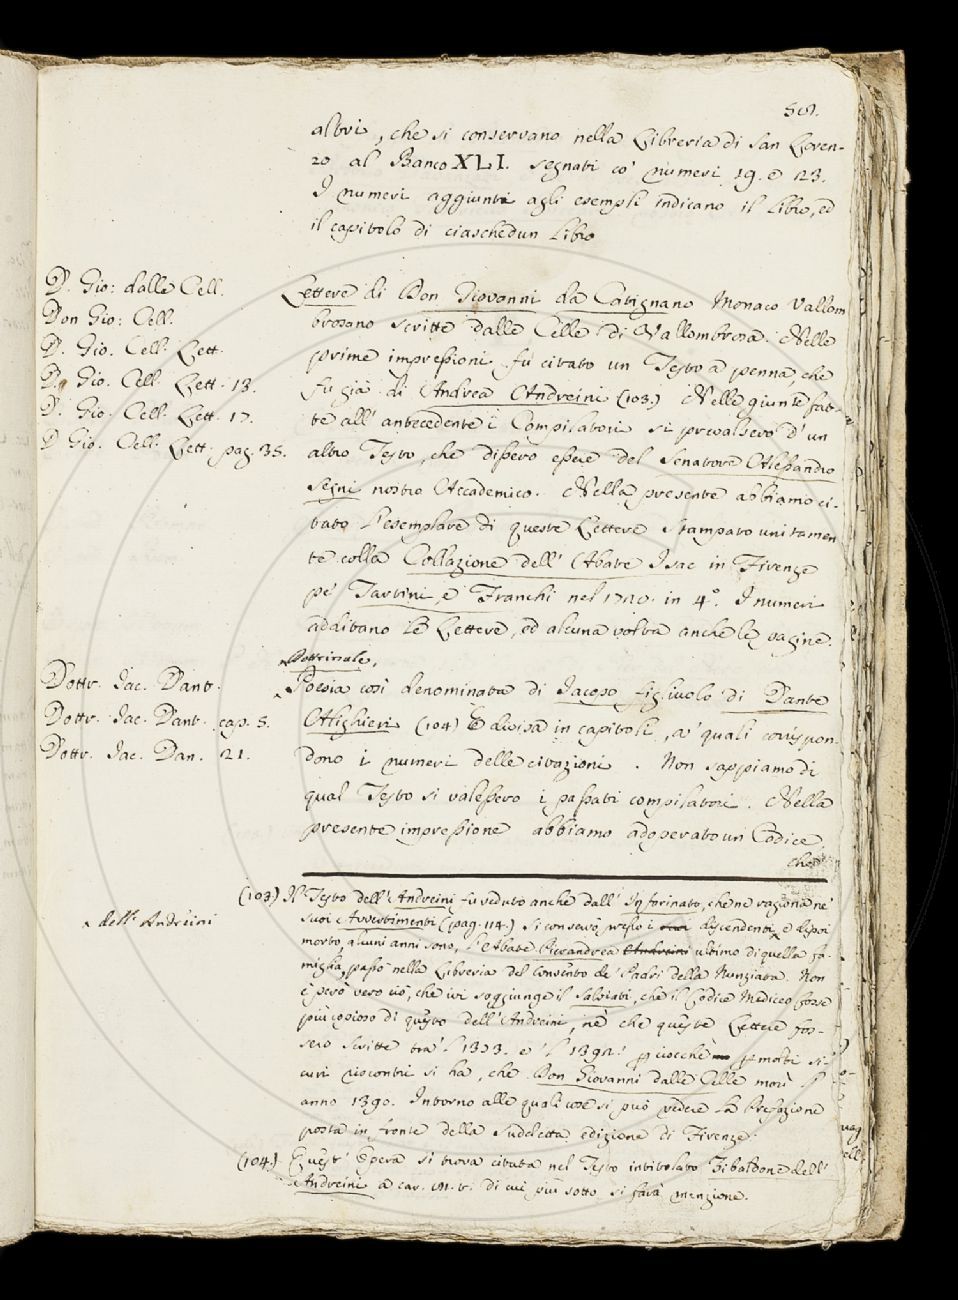 altri, che si conservano nella Libreria di San Loren-
zo al Banco XLI. segnati co' numeri 19. e 23.
I numeri aggiunti agli esempli indicano il Libro, ed
il capitolo di ciaschedun Libro
D. Gio: dalle Cell.
Don Gio: Cell.
D. Gio. Cell. Lett.
D. Gio. Cell. Lett. 13.
D. Gio. Cell. Lett. 17.
D. Gio. Cell. Lett. pag. 35.
Lettere di Don Giovanni da Catignano Monaco Vallom
brosano scritte dalle Celle di Vallombrosa. Nelle
prime impressioni fu citato un Testo a penna, che
fu già di Andrea Andreini (103.) Nelle giunte fat-
te all' antecedente i Compilatori si prevalsero d' un
altro Testo, che dissero essere del Senatore Alessandro
Segni nostro Accademico. Nella presente abbiamo ci-
tato l'esemplare di queste Lettere stampato unitamen
te colla Collazione dell' Abate Isac in Firenze
pe' Tartini, e Franchi nel 1720. in 4°. I numeri
additano le Lettere, ed alcuna volta anche le pagine.
Dottr. Iac. Dant.
Dottr. Iac. Dant. cap. 5.
Dottr. Iac. Dan. 21.
Dottrinale,
Poesia così denominata di Jacopo figliuolo di Dante
Alighieri (104) È divisa in capitoli, a' quali corrispon-
dono i numeri delle citazioni. Non sappiamo di
qual Testo si valessero i passati compilatori. Nella
presente impressione abbiamo adoperato un Codice,
che
(103) Il Testo dell' Andreini fu veduto anche dall' Infarinato, che ne ragiona ne'
suoi Avvertimenti (pag. 114.) Si conservò presso i suoi discendenti, e dipoi
dell' Andreini
morto, alcuni anni sono, l'Abate Pierandrea Andreini ultimo di quella fa-
miglia, passò nella Libreria del Convento de' Padri della Nunziata. Non
è però vero ciò, che ivi soggiunge il Salviati, che il Codice Mediceo fosse
più copioso di questo dell' Andreini, nè che queste Lettere fos-
sero scritte tra' l 1373. e 'l 1392. perciocchè per molti si-
curi riscontri si ha, che Don Giovanni dalle Celle morì l'
anno 1390. Intorno alle quali cose si può vedere la Prefazione
posta in fronte della suddetta edizione di Firenze.
(104.) Quest' Opera si trova citata nel Testo intitolato Zibaldone dell'
Andreini a car. di cui più sotto si farà menzione.